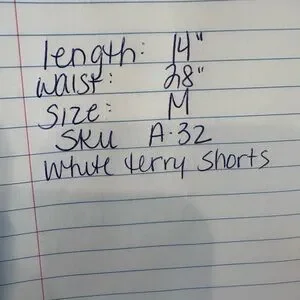 length: 14"
waist: 28"
Size: M
SKU A-32
White terry Shorts